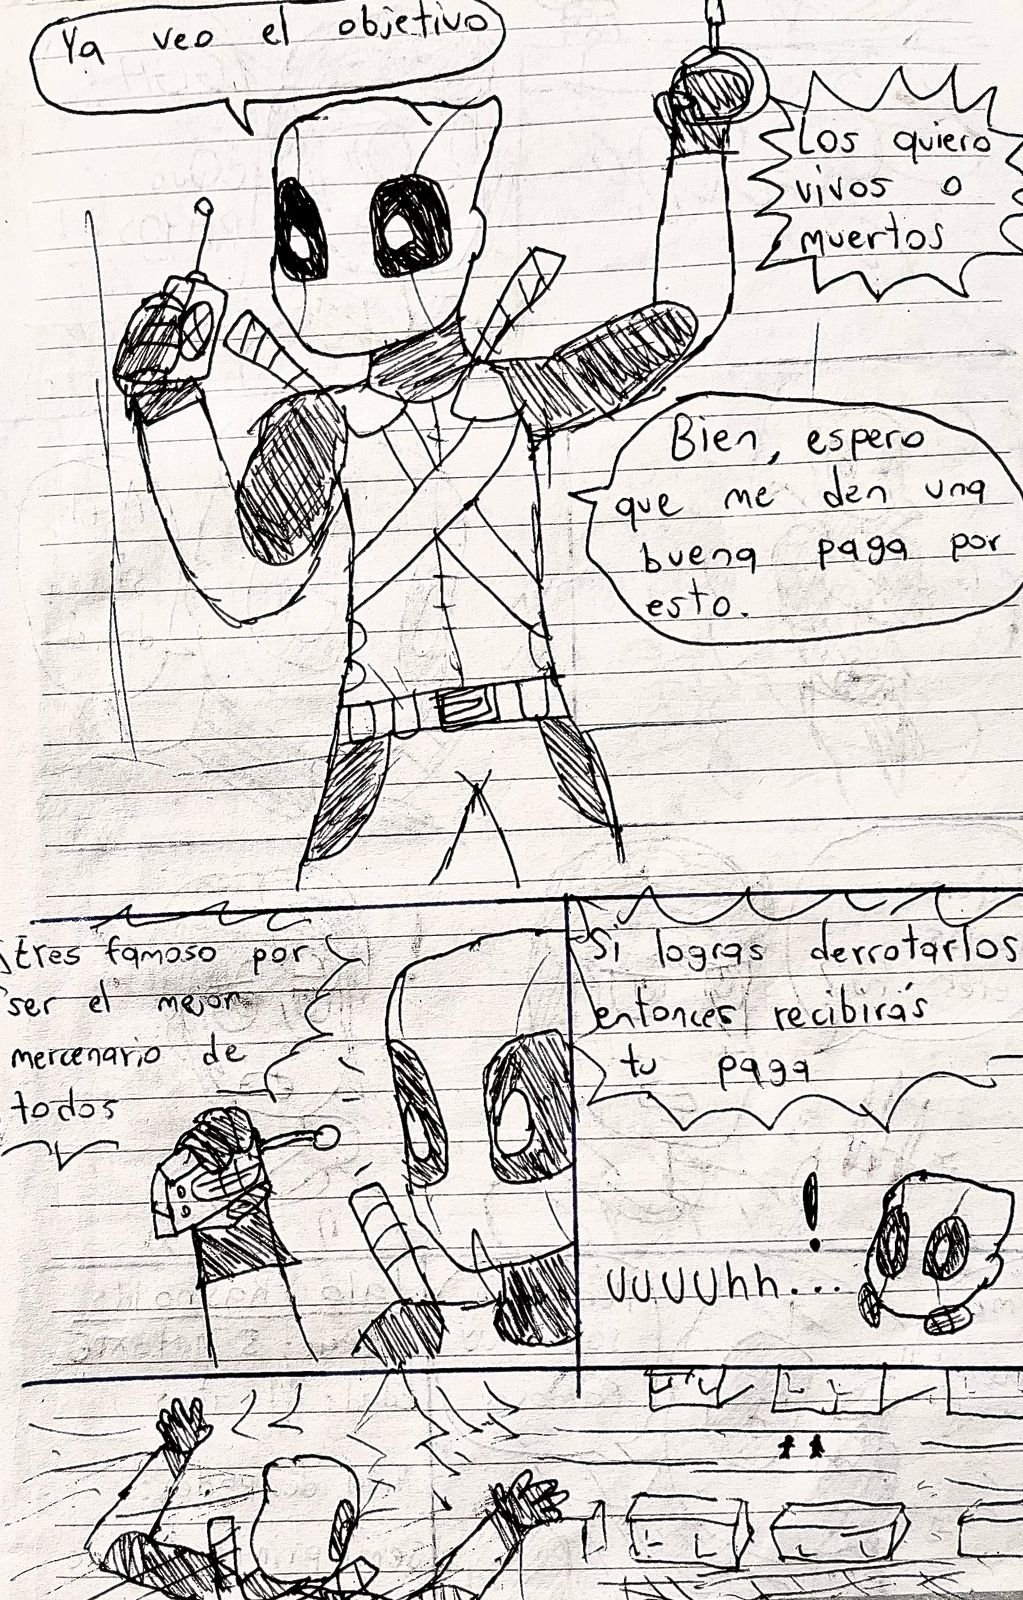 Ya veo el objetivo
Los quiero
vivos o
muertos
Bien, espero
que me den una
buena paga por
esto.
Etres famoso por
ser el mejor
mercenario de
todos
Si logras derrotarlos
entonces recibirás
tu paga
!
UUUUhh...